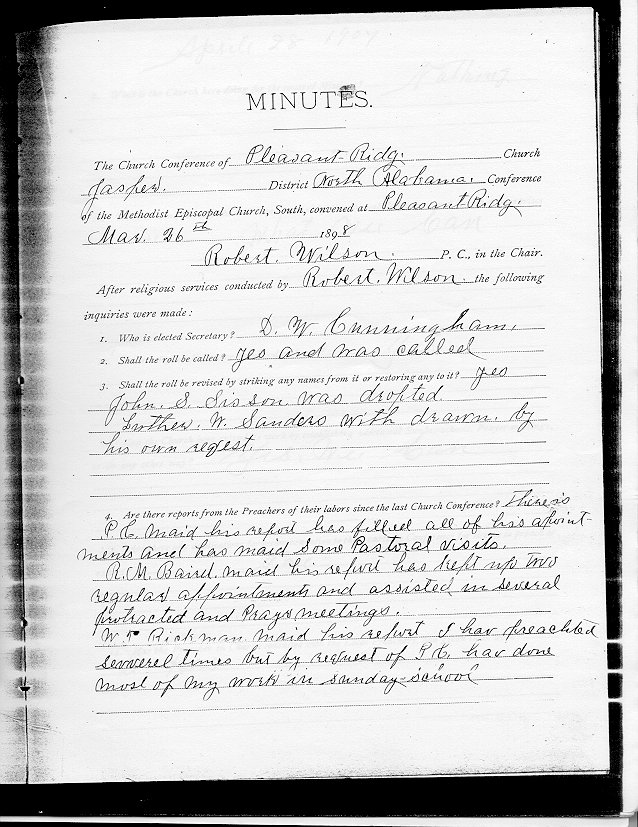 April 28 1907
MINUTES.
The Church Conference of Pleasant Ridg. Church
Jasper. District North Alabama. Conference
of the Methodist Episcopal Church, South, convened at Pleasant Ridg.
Mar. 26th 1898
Robert. Wilson. P. C., in the Chair.
After religious services conducted by Robert. Wilson. the following
inquiries were made:
1. Who is elected Secretary? D. W. Cunningham.
2. Shall the roll be called? yes and was called
3. Shall the roll be revised by striking any names from it or restoring any to it? yes
John. S. Sisson. was droped
Luther. W. Sanders with drawn. by
his own reqest.
4. Are there reports from the Preachers of their labors since the last Church Conference? there is
P. C. maid his report has filled all of his apoint-
ments and has maid some Pastoral visits.
R. M. Baird. maid his report has kept up two
regular appointments and assisted in several
protracted and Prayr meetings.
W T Rickman maid his report I hav preachted
severel times but by reqest of P. C. hav done
most of my work in sunday-school